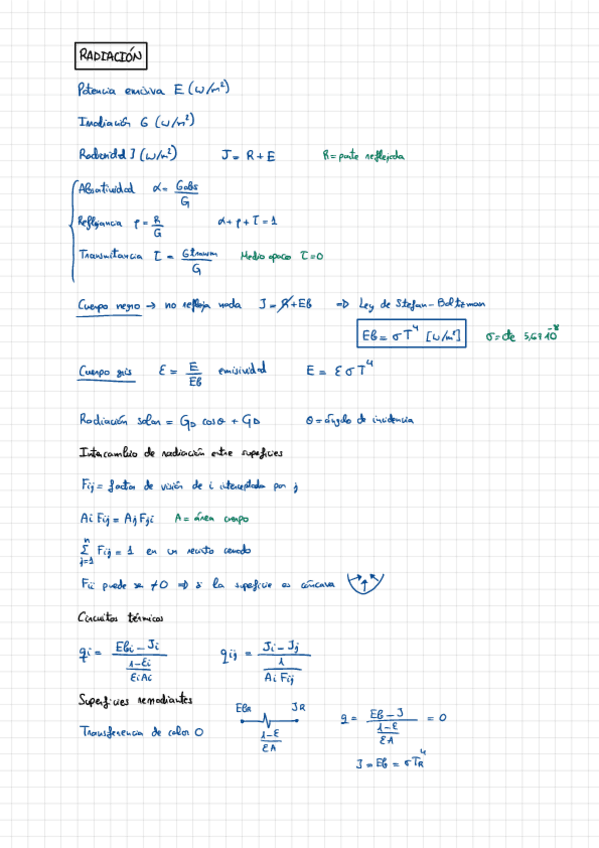 RADIACIÓN
Potencia emisiva E (W/m²)
Irradiación G (W/m²)
Radiosidad J (W/m²) J = R + E R = parte reflejada
Absortividad α = Gabs/G
Reflejancia ρ = R/G α + ρ + τ = 1
Transmitancia τ = Gtransm/G Medio opaco τ = 0
Cuerpo negro → no refleja nada J = R + Eb ⇒ Ley de Stefan-Boltzman
Eb = σT⁴ [W/m²] σ = cte 5,67·10⁻⁸
Cuerpo gris ε = E/Eb emisividad E = εσT⁴
Radiación solar = G_D cosθ + G_D θ = ángulo de incidencia
Intercambio de radiación entre superficies
Fij = factor de visión de i interceptada por j
Ai Fij = Aj Fji A = área cuerpo
Σ_{j=1}^{n} Fij = 1 en un recinto cerrado
Fii puede ser ≠ 0 ⇒ si la superficie es cóncava
Circuitos térmicos
qi = (Ebi - Ji)/((1-εi)/(εiAi)) qij = (Ji - Jj)/(1/(Ai Fij))
Superficies rerradiantes
EbR JR
Transferencia de calor 0 (1-ε)/(εA) q = (Eb - J)/((1-ε)/(εA)) = 0
J = Eb = σT_R⁴